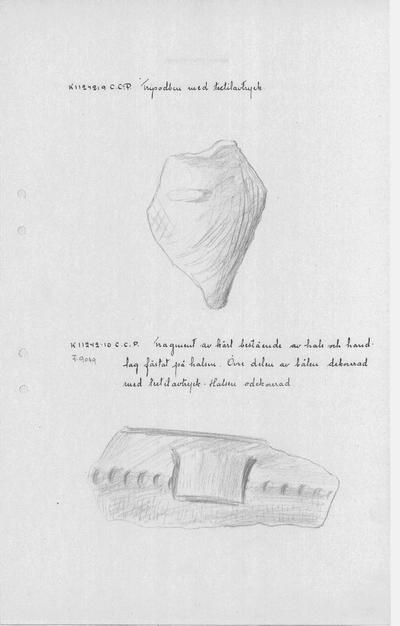 K11242:9 C.C.P. Tripodben med textilavtryck
K11242:10 C.C.P. Fragment av kärl bestående av hals och hand-
tag fästat på halsen. Övre delen av bålen dekorerad
med textilavtryck. Halsen odekorerad